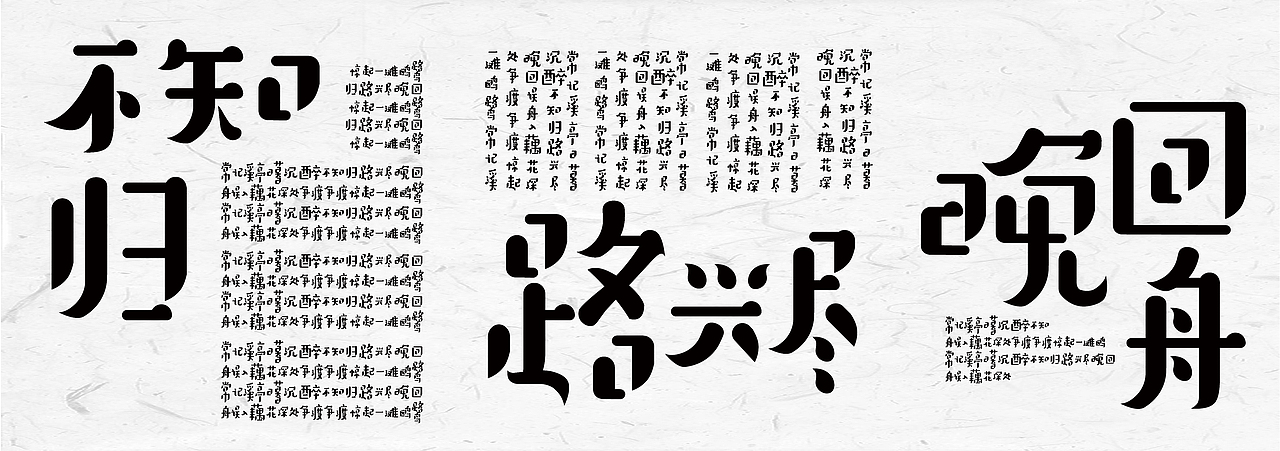 不知
归
惊起一滩鸥鹭
归路兴尽晚回
惊起一滩鸥鹭
归路兴尽晚回
惊起一滩鸥鹭
常记溪亭日暮沉醉不知归路兴尽晚回
舟误入藕花深处争渡争渡惊起一滩鸥鹭
常记溪亭日暮沉醉不知归路兴尽晚回
舟误入藕花深处争渡争渡惊起一滩鸥鹭
常记溪亭日暮沉醉不知归路兴尽晚回
舟误入藕花深处争渡争渡惊起一滩鸥鹭
常记溪亭日暮沉醉不知归路兴尽晚回
舟误入藕花深处争渡争渡惊起一滩鸥鹭
常记溪亭日暮沉醉不知归路兴尽晚回
舟误入藕花深处争渡争渡惊起一滩鸥鹭
常记溪亭日暮沉醉不知归路兴尽晚回
舟误入藕花深处争渡争渡惊起一滩鸥鹭
常记溪亭日暮
沉醉不知归路兴尽
晚回误舟入藕花深
常记溪亭日暮
沉醉不知归路兴尽
晚回误舟入藕花深
处争渡争渡惊起
一滩鸥鹭常记溪
常记溪亭日暮
沉醉不知归路兴尽
晚回误舟入藕花深
处争渡争渡惊起
一滩鸥鹭常记溪
常记溪亭日暮
沉醉不知归路兴尽
晚回误舟入藕花深
处争渡争渡惊起
一滩鸥鹭常记溪
路兴尽
晚回
舟
常记溪亭日暮沉醉不知
舟误入藕花深处争渡争渡惊起一滩鸥
常记溪亭日暮沉醉不知归路兴尽晚回
舟误入藕花深处